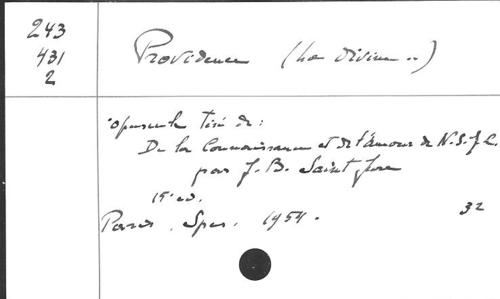 243
431
2
Providence (La divine ..)
opuscule tiré de :
De la Connaissance et de l'Amour de N.S.J.C.
par J. B. Saint Jure
15e ed.
Paris, Spes, 1954.
32